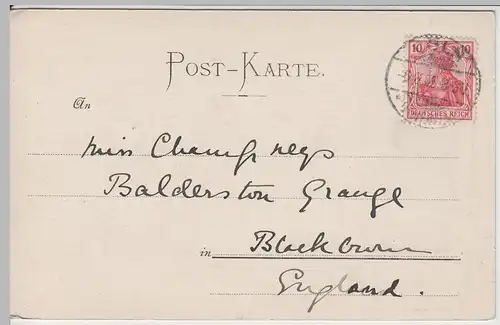 10 10
DEUTSCHES REICH
POST-KARTE.
An
Miss Champneys
Balderston Grange
in Blackburn
England.